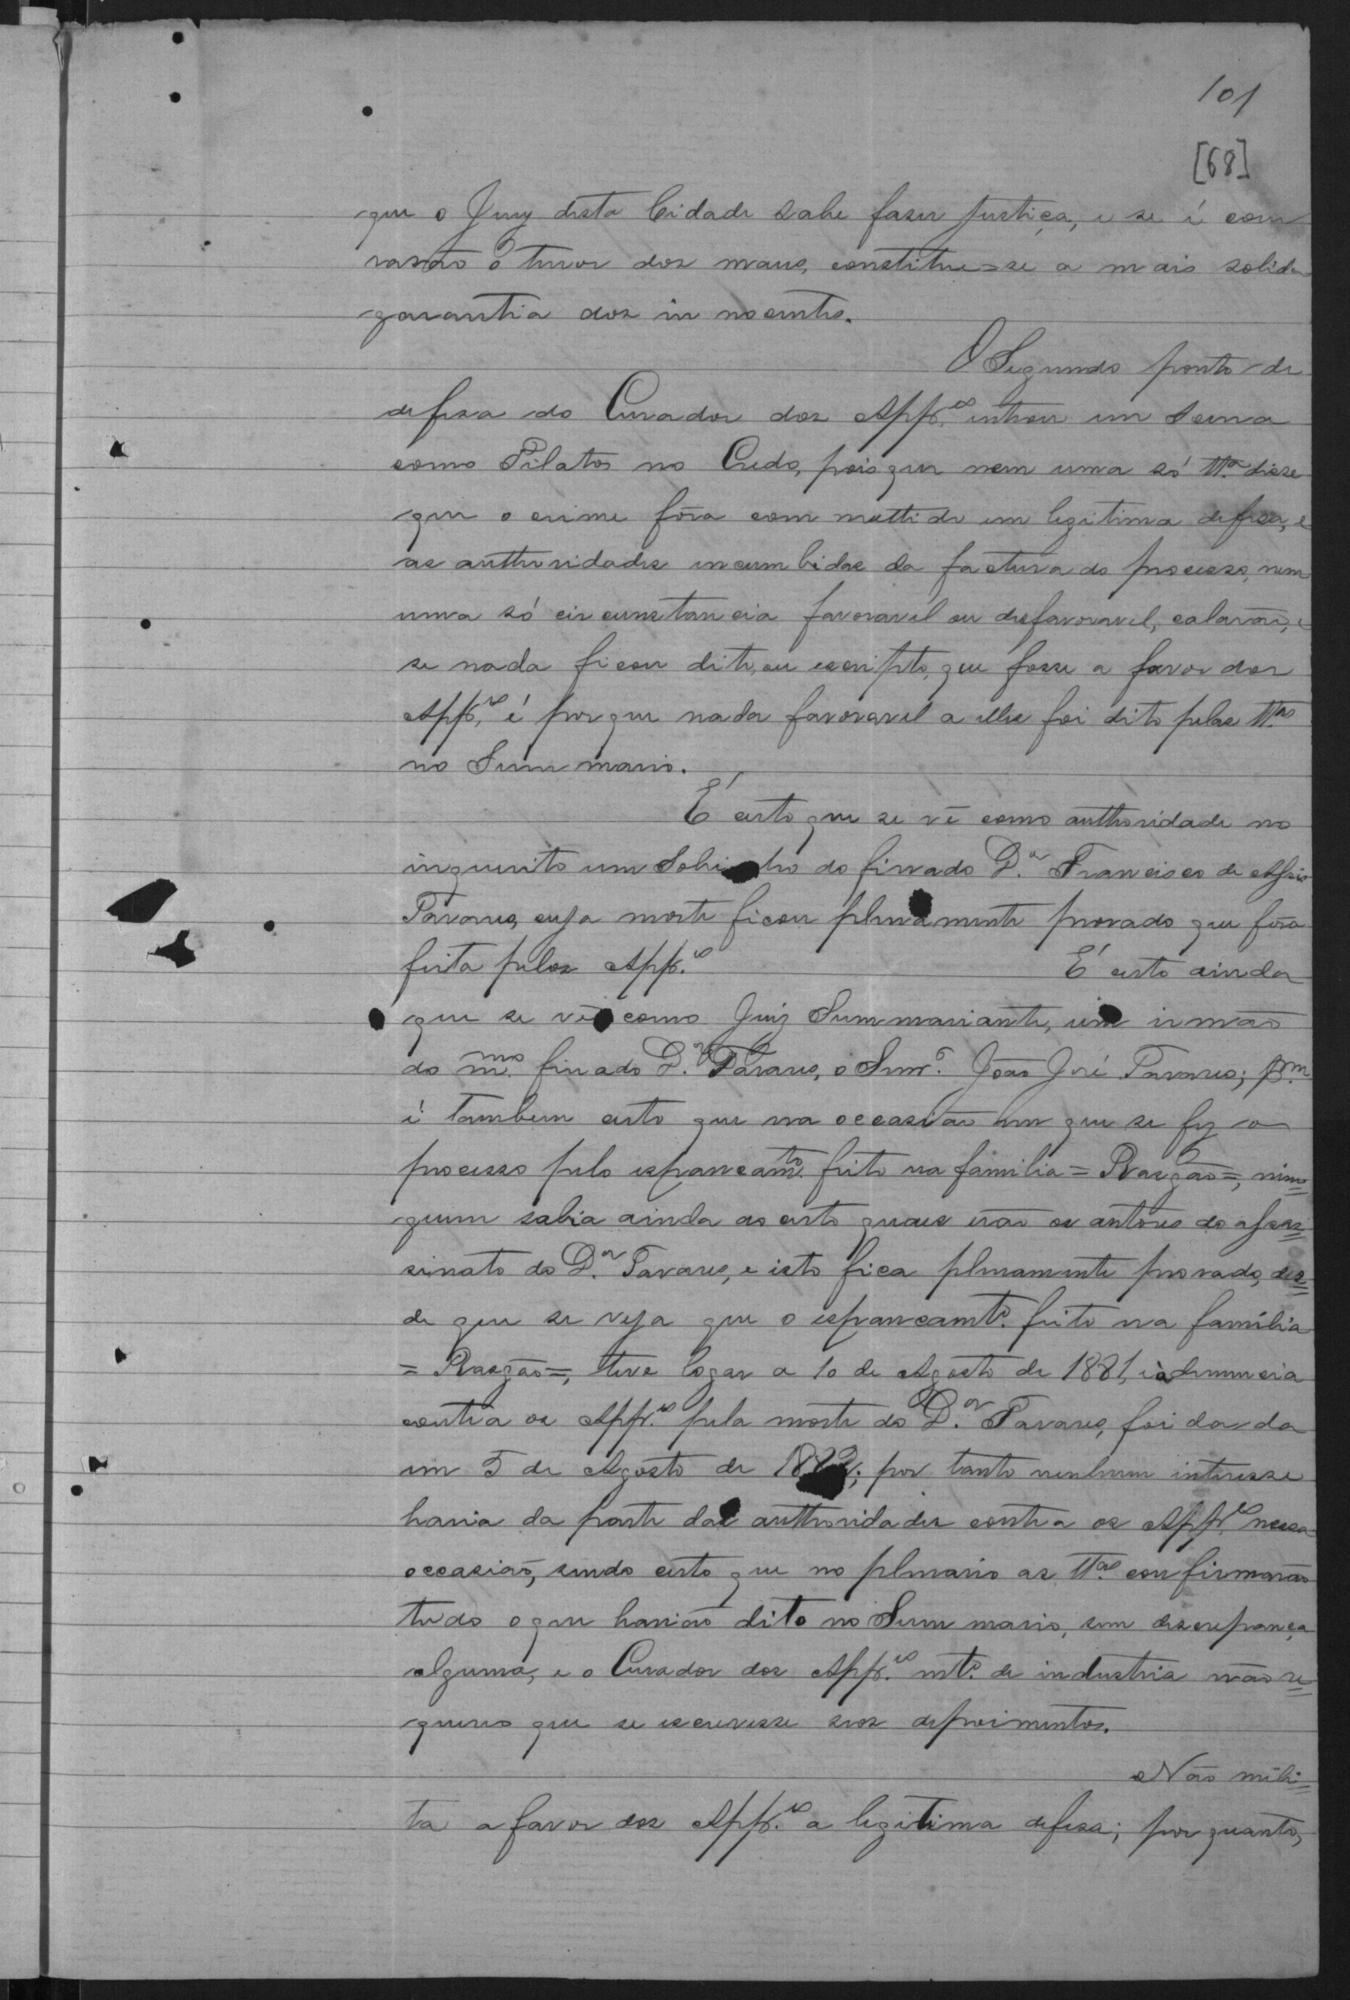 101
[68]
que o Jury desta Cidade sabe faser justiça, e se é com
rasão o terror dos maus, constitue-se a mais solida
garantia dos innocentes.
O Segundo ponto de
defesa do Curador dos App.es entrou em scena
como Pilatos no Credo, pois que nem uma só tt.a disse
que o crime fôra commettido em legitima defesa, e
as authoridades incumbidas da factura do processo, nem
uma só circunstancia favoravel ou desfavoravel, calarão, e
se nada ficou dito, ou escripto, que fosse a favor dos
App.es é porque nada favoravel a elles foi dito pelas tt.as
no Summario.
É certo que se vê como authoridade no
inquerito um Sobrinho do finado D.or Francisco de Assis
Tavares, cuja morte ficou plenamente provado que fôra
feita pelos App.es É certo ainda
que se vê como Juiz Summariante, um irmão
do m.mo finado D.or Tavares, o Snr.e João José Tavares; p.m
é tambem certo que na occasião em que se fez o
processo pelo espancam.to feito na familia = Rasgão =, nin=
guem sabia ainda ao certo quaes erão os autores do assas=
sinato do D.or Tavares, e isto fica plenamente provado, des=
de que se veja que o espancamt.o feito na familia
= Rasgão =, teve logar a 10 de Agosto de 1881, e a denuncia
contra os App.es pela morte do D.or Tavares, foi dada
em 5 de Agosto de 1882; por tanto nenhum interesse
havia da parte das authoridades contra os App.es nessa
occasião, sendo certo que no plenario as tt.as confirmarão
tudo o que havião dito no Summario, sem discrepança
alguma, e o Curador dos App.es mt.o de industria não re=
quereo que se escrevesse seos depoimentos.
Não mili=
ta a favor dos App.es a legitima defesa; por quanto,